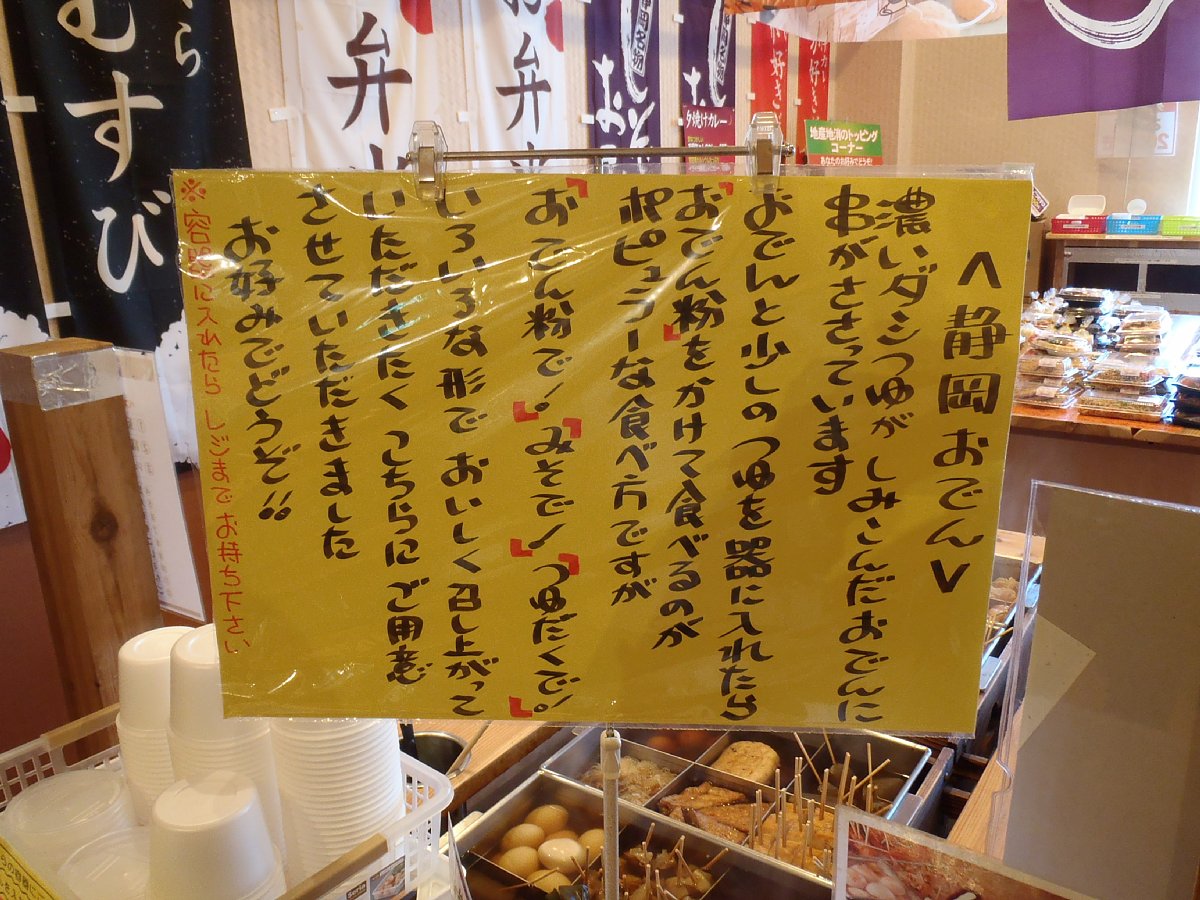 <静岡おでん>
濃いダシつゆが しみこんだおでんに
串がささっています
おでんと少しの つゆを器に入れたら
「おでん粉」をかけて食べるのが
ポピュラーな食べ方ですが
「おでん粉で！」「みそで！」「つゆだくで！」
いろいろな形で おいしく召し上がって
いただきたく こちらに ご用意
させていただきました
お好みでどうぞ!!
※容器に入れたら レジまでお持ち下さい
むすび
お弁
夕焼けカレー
地産地消のトッピング
コーナー
あなたのお好みでどうぞ!